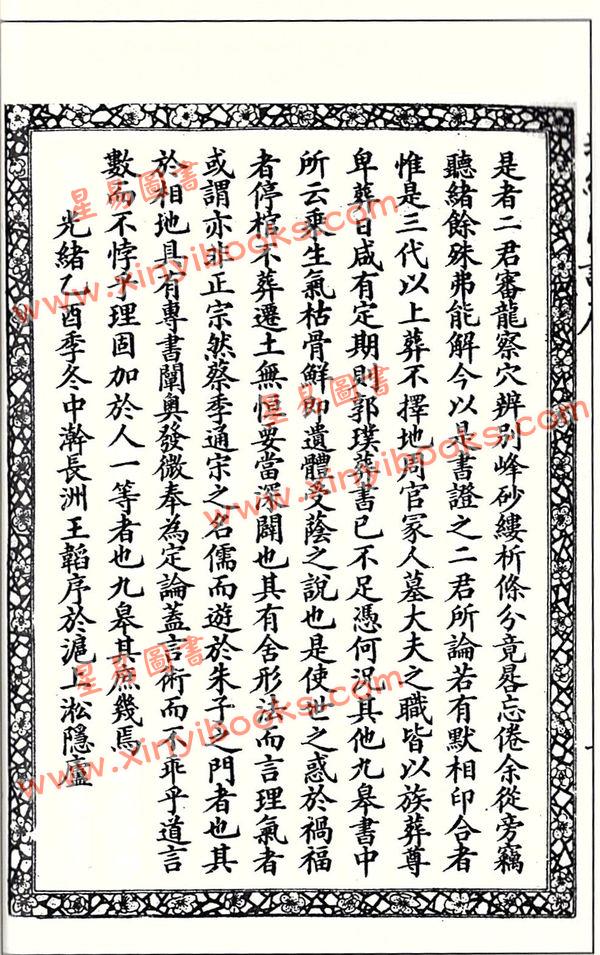 是者二君審龍察穴辨別峰砂縷析條分竟晷忘倦余從旁竊
聽緒餘殊弗能解今以是書證之二君所論若有默相印合者
惟是三代以上葬不擇地周官冢人墓大夫之職皆以族葬尊
卑葬日咸有定期則郭璞葬書已不足憑何況其他九皋書中
所云乘生氣枯骨鮮即遺體受蔭之說也是使世之惑於禍福
者停棺不葬遷土無恒要當深闢也其有舍形法而言理氣者
或謂亦非正宗然蔡季通宗之名儒而遊於朱子之門者也其
於相地具有專書闡奧發微奉為定論蓋言術而不乖乎道言
數而不悖乎理固加於人一等者也九皋其庶幾焉
光緒乙酉季冬中澣長洲王韜序於滬上淞隱廬
星易圖書
www.xinyibooks.com
星易圖書
www.xinyibooks.com
星易圖書
www.xinyibooks.com